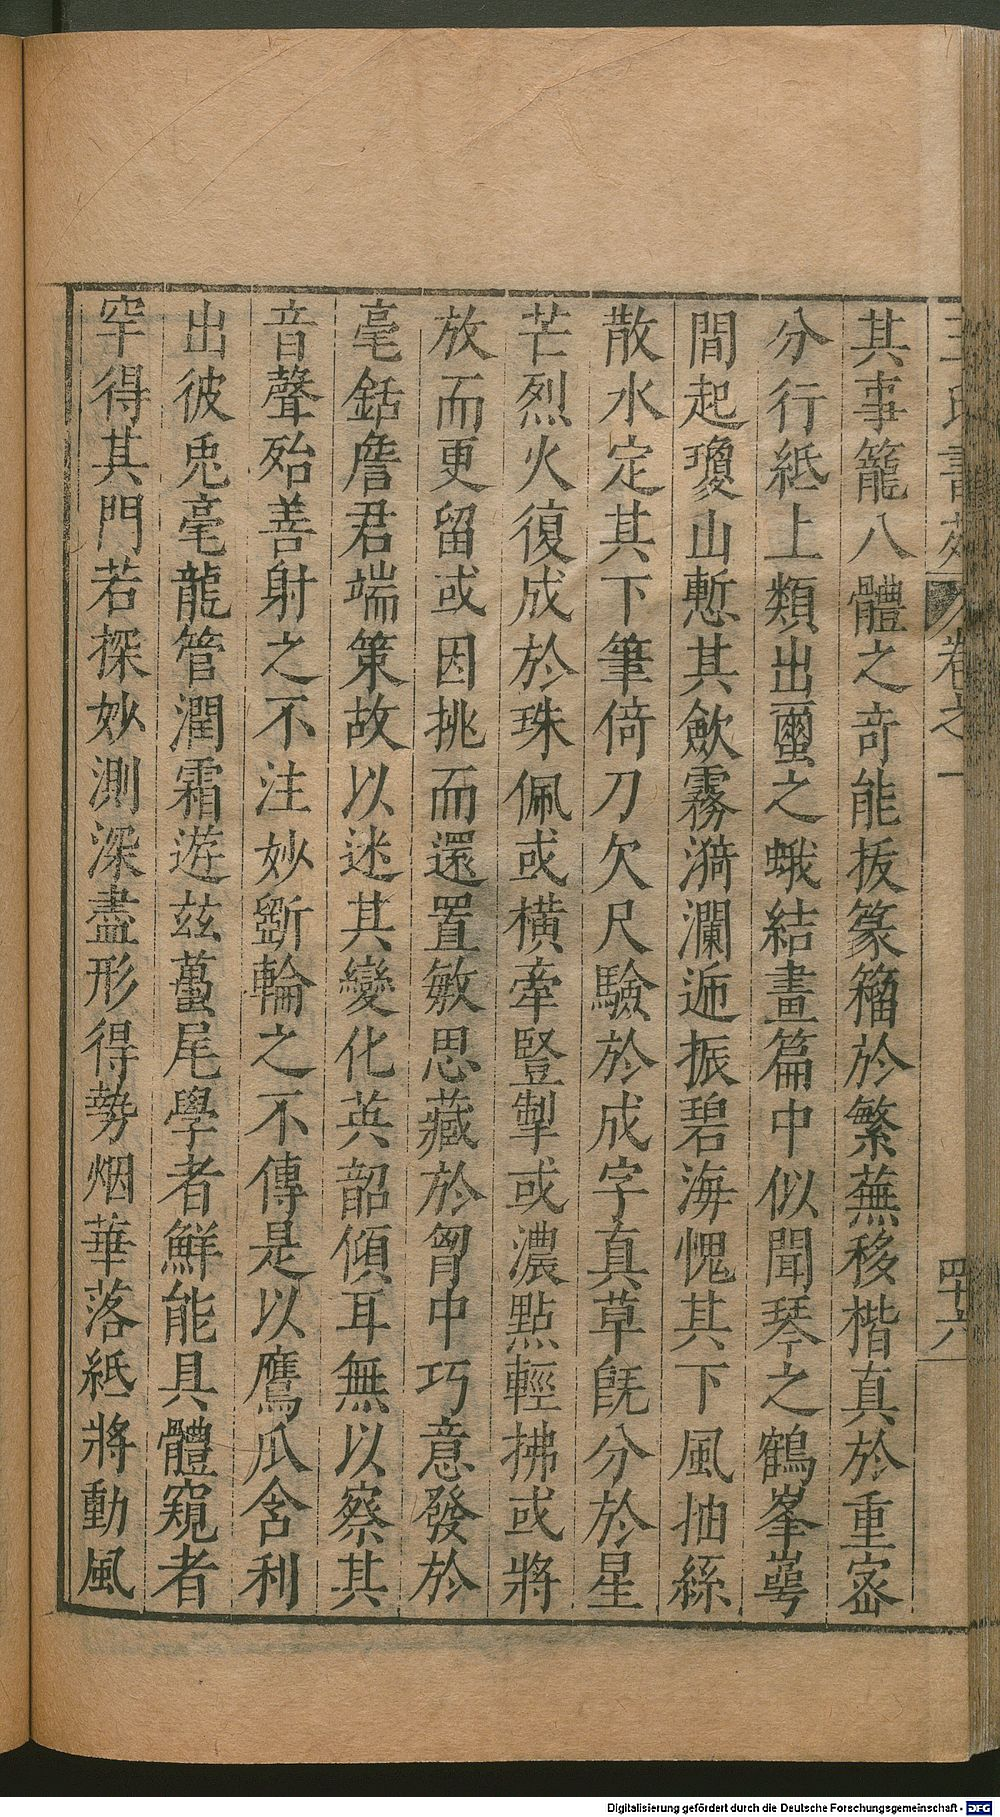 王氏書苑 卷之一 四十六
其事籠八體之奇能拔篆籀於繁蕪移楷真於重宻
分行紙上類出䖝之蛾結畫篇中似聞琴之鶴峯崿
間起瓊山慙其歛霧漪瀾遞振碧海愧其下風抽絲
散水定其下筆倚刀欠尺驗於成字真草旣分於星
芒烈火復成於珠佩或橫牽豎掣或濃點輕拂或將
放而更留或因挑而還置敏思藏於胷中巧意發於
毫銛詹君端策故以迷其變化英韶傾耳無以察其
音聲殆善射之不注妙斵輪之不傳是以鷹爪含利
出彼兎毫龍管潤霜遊茲蠆尾學者鮮能具體窺者
罕得其門若探妙測深盡形得勢烟華落紙將動風
Digitalisierung gefördert durch die Deutsche Forschungsgemeinschaft - DFG